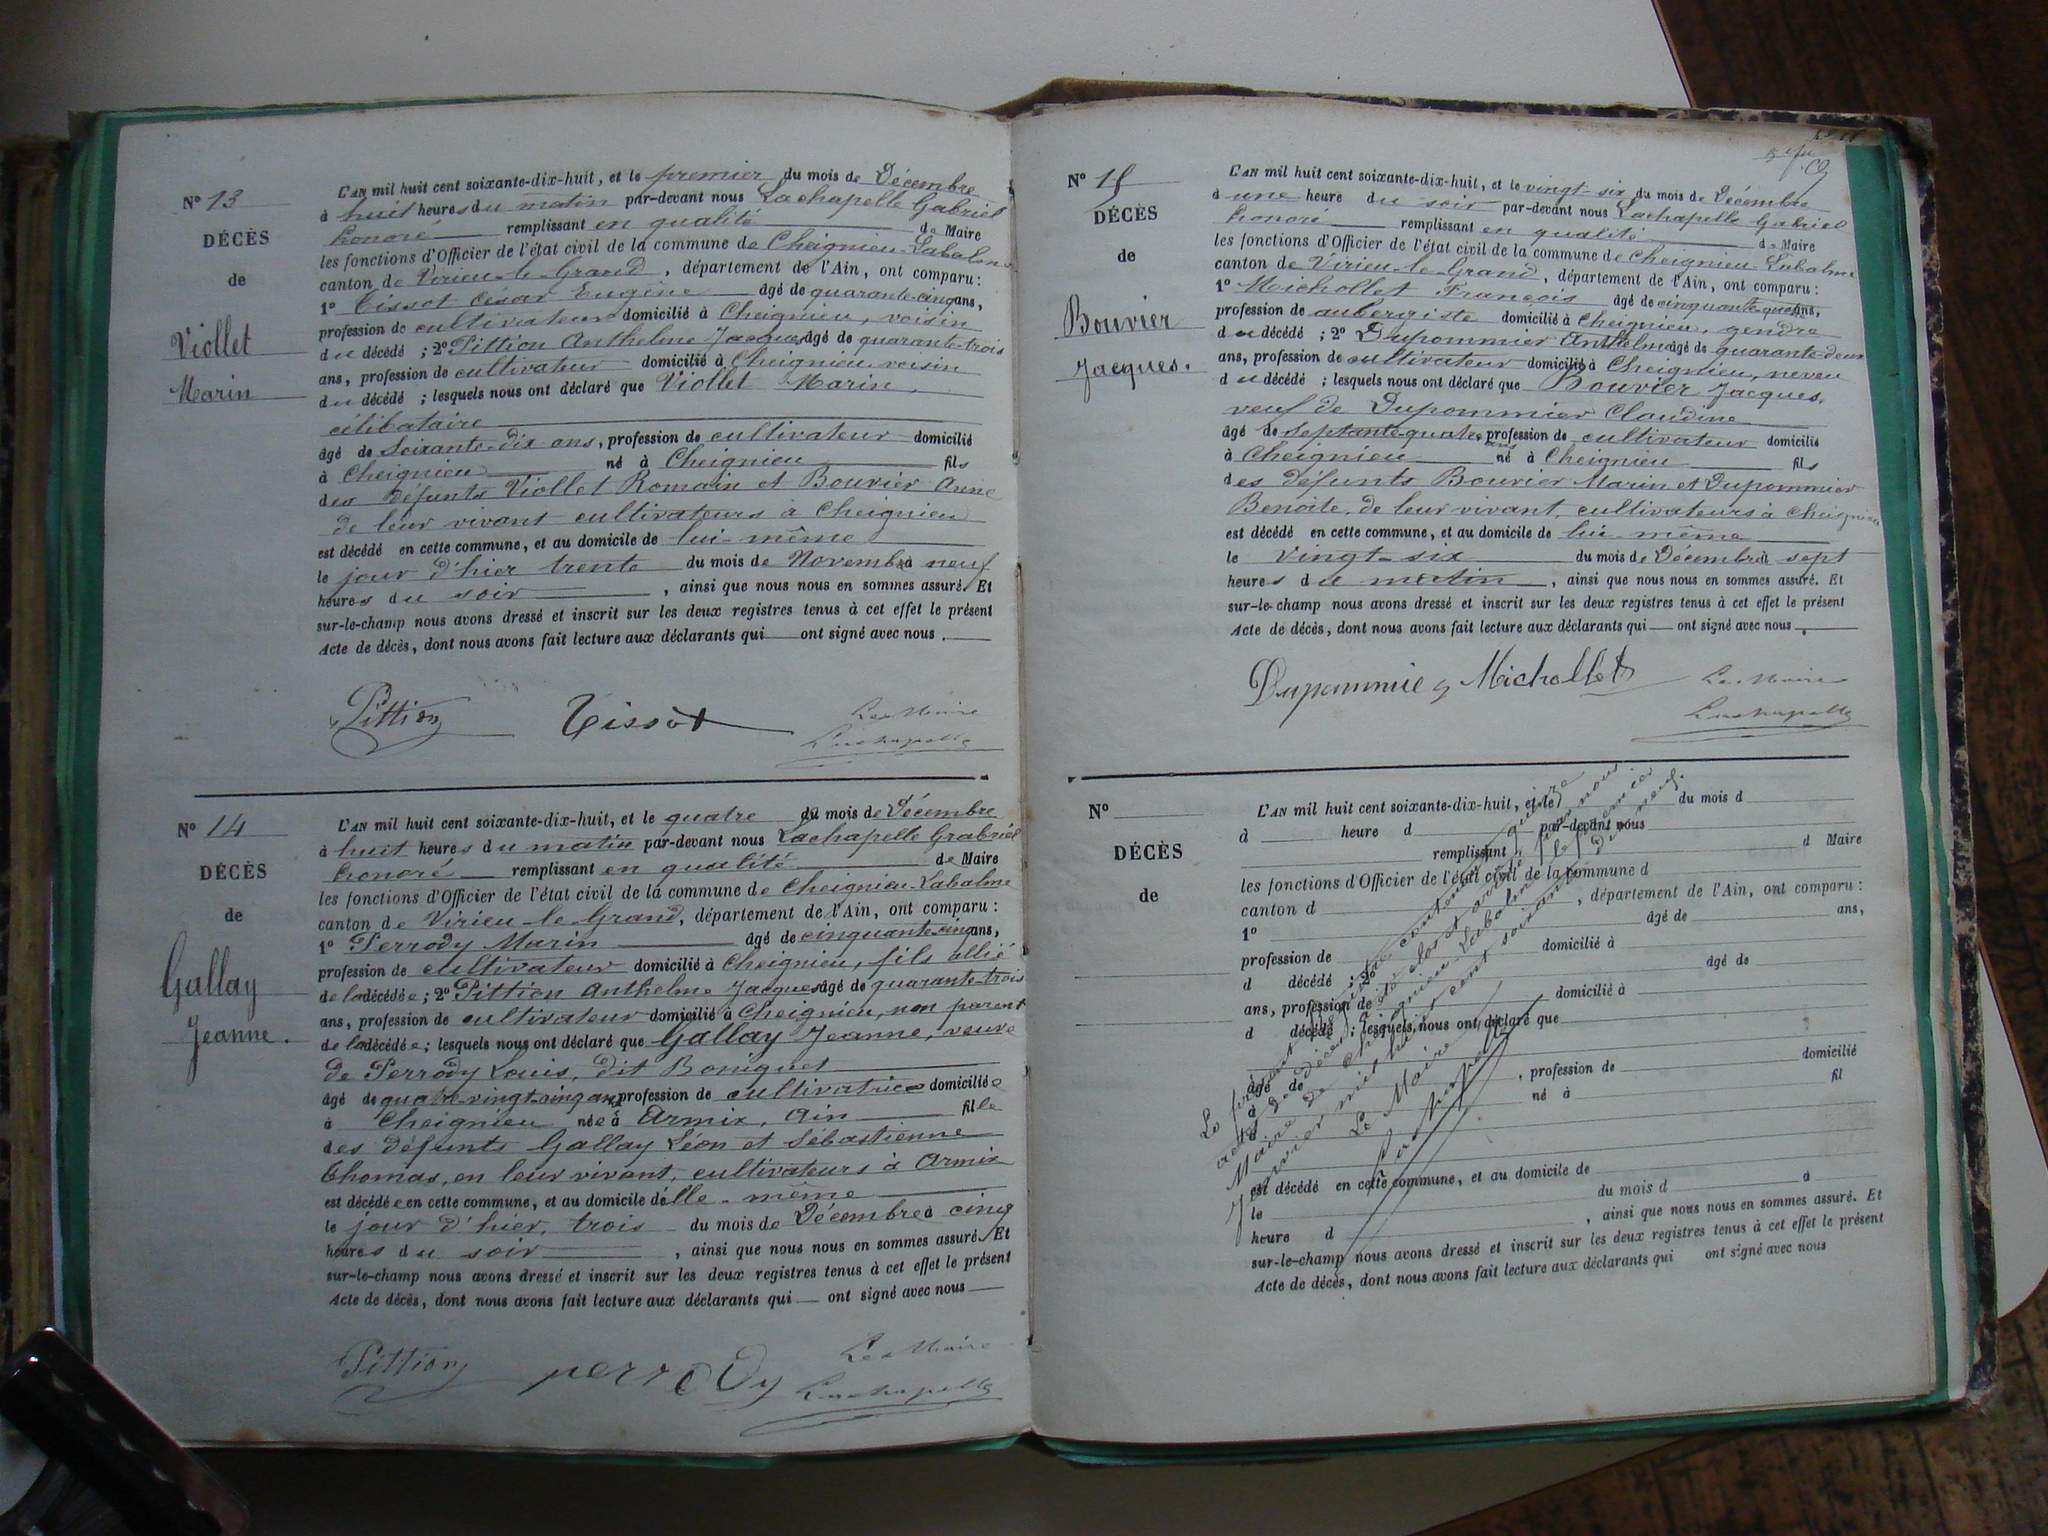 N° 13
DÉCÈS
de
Viollet
Marin
L'AN mil huit cent soixante-dix-huit, et le premier du mois de Décembre
à huit heures du matin par-devant nous Lachapelle Gabriel
honoré remplissant en qualité de Maire
les fonctions d'Officier de l'état civil de la commune de Cheignieu-Labalme
canton de Virieu-le-Grand, département de l'Ain, ont comparu :
1° Tissot César Eugène âgé de quarante-cinq ans,
profession de cultivateur domicilié à Cheignieu, voisin
du décédé ; 2° Pittion Anthelme Jacques âgé de quarante-trois
ans, profession de cultivateur domicilié à Cheignieu voisin
du décédé ; lesquels nous ont déclaré que Viollet Marin,
célibataire
âgé de Soixante-dix ans, profession de cultivateur domicilié
à Cheignieu né à Cheignieu fils
des défunts Viollet Romain et Bouvier Anne
de leur vivant cultivateurs à Cheignieu
est décédé en cette commune, et au domicile de lui-même
le jour d'hier trente du mois de Novembre à neuf
heures du soir, ainsi que nous nous en sommes assuré. Et
sur-le-champ nous avons dressé et inscrit sur les deux registres tenus à cet effet le présent
Acte de décès, dont nous avons fait lecture aux déclarants qui ont signé avec nous.
Pittion Tissot Le Maire
Lachapelle
N° 14
DÉCÈS
de
Gallay
Jeanne.
L'AN mil huit cent soixante-dix-huit, et le quatre du mois de Décembre
à huit heures du matin par-devant nous Lachapelle Grabriel
honoré remplissant en qualité de Maire
les fonctions d'Officier de l'état civil de la commune de Cheignieu-Labalme
canton de Virieu-le-Grand, département de l'Ain, ont comparu :
1° Perrody Marin âgé de cinquante-cinq ans,
profession de cultivateur domicilié à Cheignieu, fils allié
de la décédée ; 2° Pittion Anthelme Jacques âgé de quarante-trois
ans, profession de cultivateur domicilié à Cheignieu, non parent
de la décédée ; lesquels nous ont déclaré que Gallay Jeanne, veuve
de Perrody Louis, dit Boniguet
âgé de quatre-vingt-cinq ans profession de cultivatrice domiciliée
à Cheignieu née à Armix, Ain fille
des défunts Gallay Léon et Sébastienne
Thomas, en leur vivant, cultivateurs à Armix
est décédée en cette commune, et au domicile d'elle-même
le jour d'hier, trois du mois de Décembre à cinq
heures du soir, ainsi que nous nous en sommes assuré. Et
sur-le-champ nous avons dressé et inscrit sur les deux registres tenus à cet effet le présent
Acte de décès, dont nous avons fait lecture aux déclarants qui ont signé avec nous
Pittion perrody Le Maire
Lachapelle
N° 15
DÉCÈS
de
Bouvier
Jacques.
L'AN mil huit cent soixante-dix-huit, et le vingt-six du mois de Décembre
à une heure du soir par-devant nous Lachapelle Gabriel
honoré remplissant en qualité de Maire
les fonctions d'Officier de l'état civil de la commune de Cheignieu-Labalme
canton de Virieu-le-Grand, département de l'Ain, ont comparu :
1° Michollet François âgé de cinquante-quatre ans,
profession de aubergiste domicilié à Cheignieu, gendre
du décédé ; 2° Dupommier Anthelme âgé de quarante-deux
ans, profession de cultivateur domicilié à Cheignieu, neveu
du décédé ; lesquels nous ont déclaré que Bouvier Jacques,
veuf de Dupommier Claudine
âgé de septante-quatre ans profession de cultivateur domicilié
à Cheignieu né à Cheignieu fils
des défunts Bouvier Marin et Dupommier
Benoite, de leur vivant, cultivateurs à Cheignieu
est décédé en cette commune, et au domicile de lui-même
le vingt-six du mois de Décembre à sept
heures du matin, ainsi que nous nous en sommes assuré. Et
sur-le-champ nous avons dressé et inscrit sur les deux registres tenus à cet effet le présent
Acte de décès, dont nous avons fait lecture aux déclarants qui ont signé avec nous.
Dupommier Michollet Le Maire
Lachapelle
N°
DÉCÈS
de
L'AN mil huit cent soixante-dix-huit, et le du mois d
à heure d par-devant nous
remplissant d Maire
les fonctions d'Officier de l'état civil de la commune d
canton d, département de l'Ain, ont comparu :
1° âgé de ans,
profession de domicilié à
d décédé ; 2° âgé de
ans, profession de domicilié à
d décédé ; lesquels nous ont déclaré que
âgé de, profession de domicilié
à né à fil
d
est décédé en cette commune, et au domicile de
le du mois d à
heure d, ainsi que nous nous en sommes assuré. Et
sur-le-champ nous avons dressé et inscrit sur les deux registres tenus à cet effet le présent
Acte de décès, dont nous avons fait lecture aux déclarants qui ont signé avec nous
Le présent registre contenant quinze
actes de décès a été clos et arrêté par nous
Maire de Cheignieu-Labalme le premier
Janvier mil huit cent soixante dix neuf.
Le Maire
Lachapelle